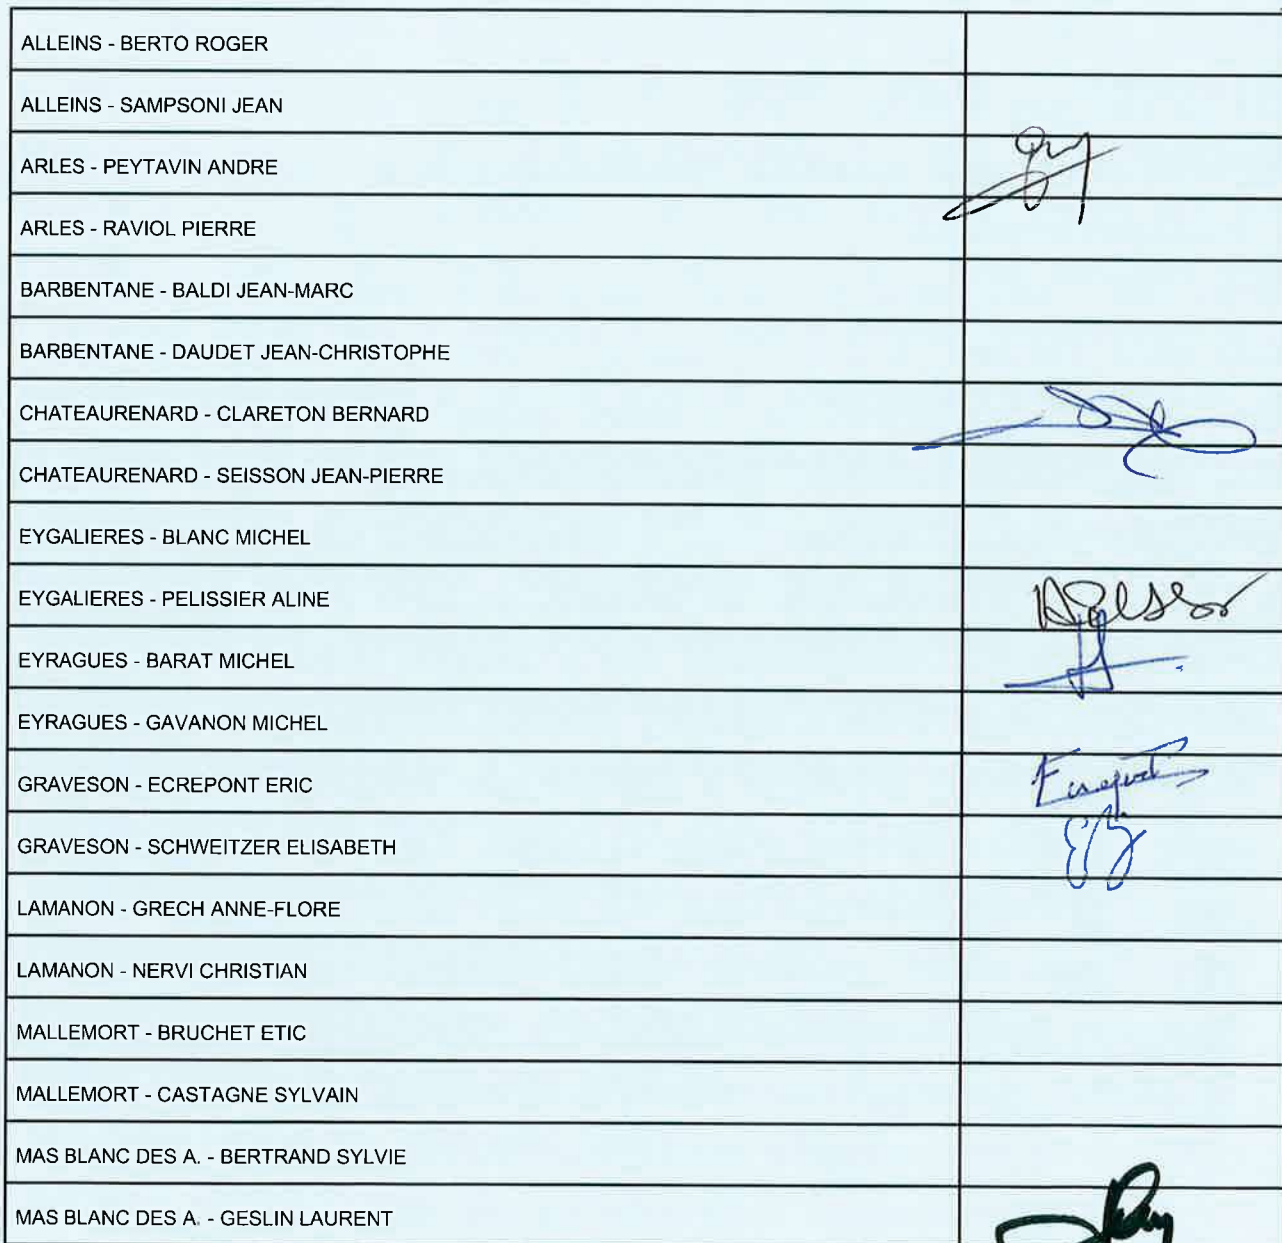 ALLEINS - BERTO ROGER
ALLEINS - SAMPSONI JEAN
ARLES - PEYTAVIN ANDRE
ARLES - RAVIOL PIERRE
BARBENTANE - BALDI JEAN-MARC
BARBENTANE - DAUDET JEAN-CHRISTOPHE
CHATEAURENARD - CLARETON BERNARD
CHATEAURENARD - SEISSON JEAN-PIERRE
EYGALIERES - BLANC MICHEL
EYGALIERES - PELISSIER ALINE
EYRAGUES - BARAT MICHEL
EYRAGUES - GAVANON MICHEL
GRAVESON - ECREPONT ERIC
GRAVESON - SCHWEITZER ELISABETH
LAMANON - GRECH ANNE-FLORE
LAMANON - NERVI CHRISTIAN
MALLEMORT - BRUCHET ETIC
MALLEMORT - CASTAGNE SYLVAIN
MAS BLANC DES A. - BERTRAND SYLVIE
MAS BLANC DES A. - GESLIN LAURENT